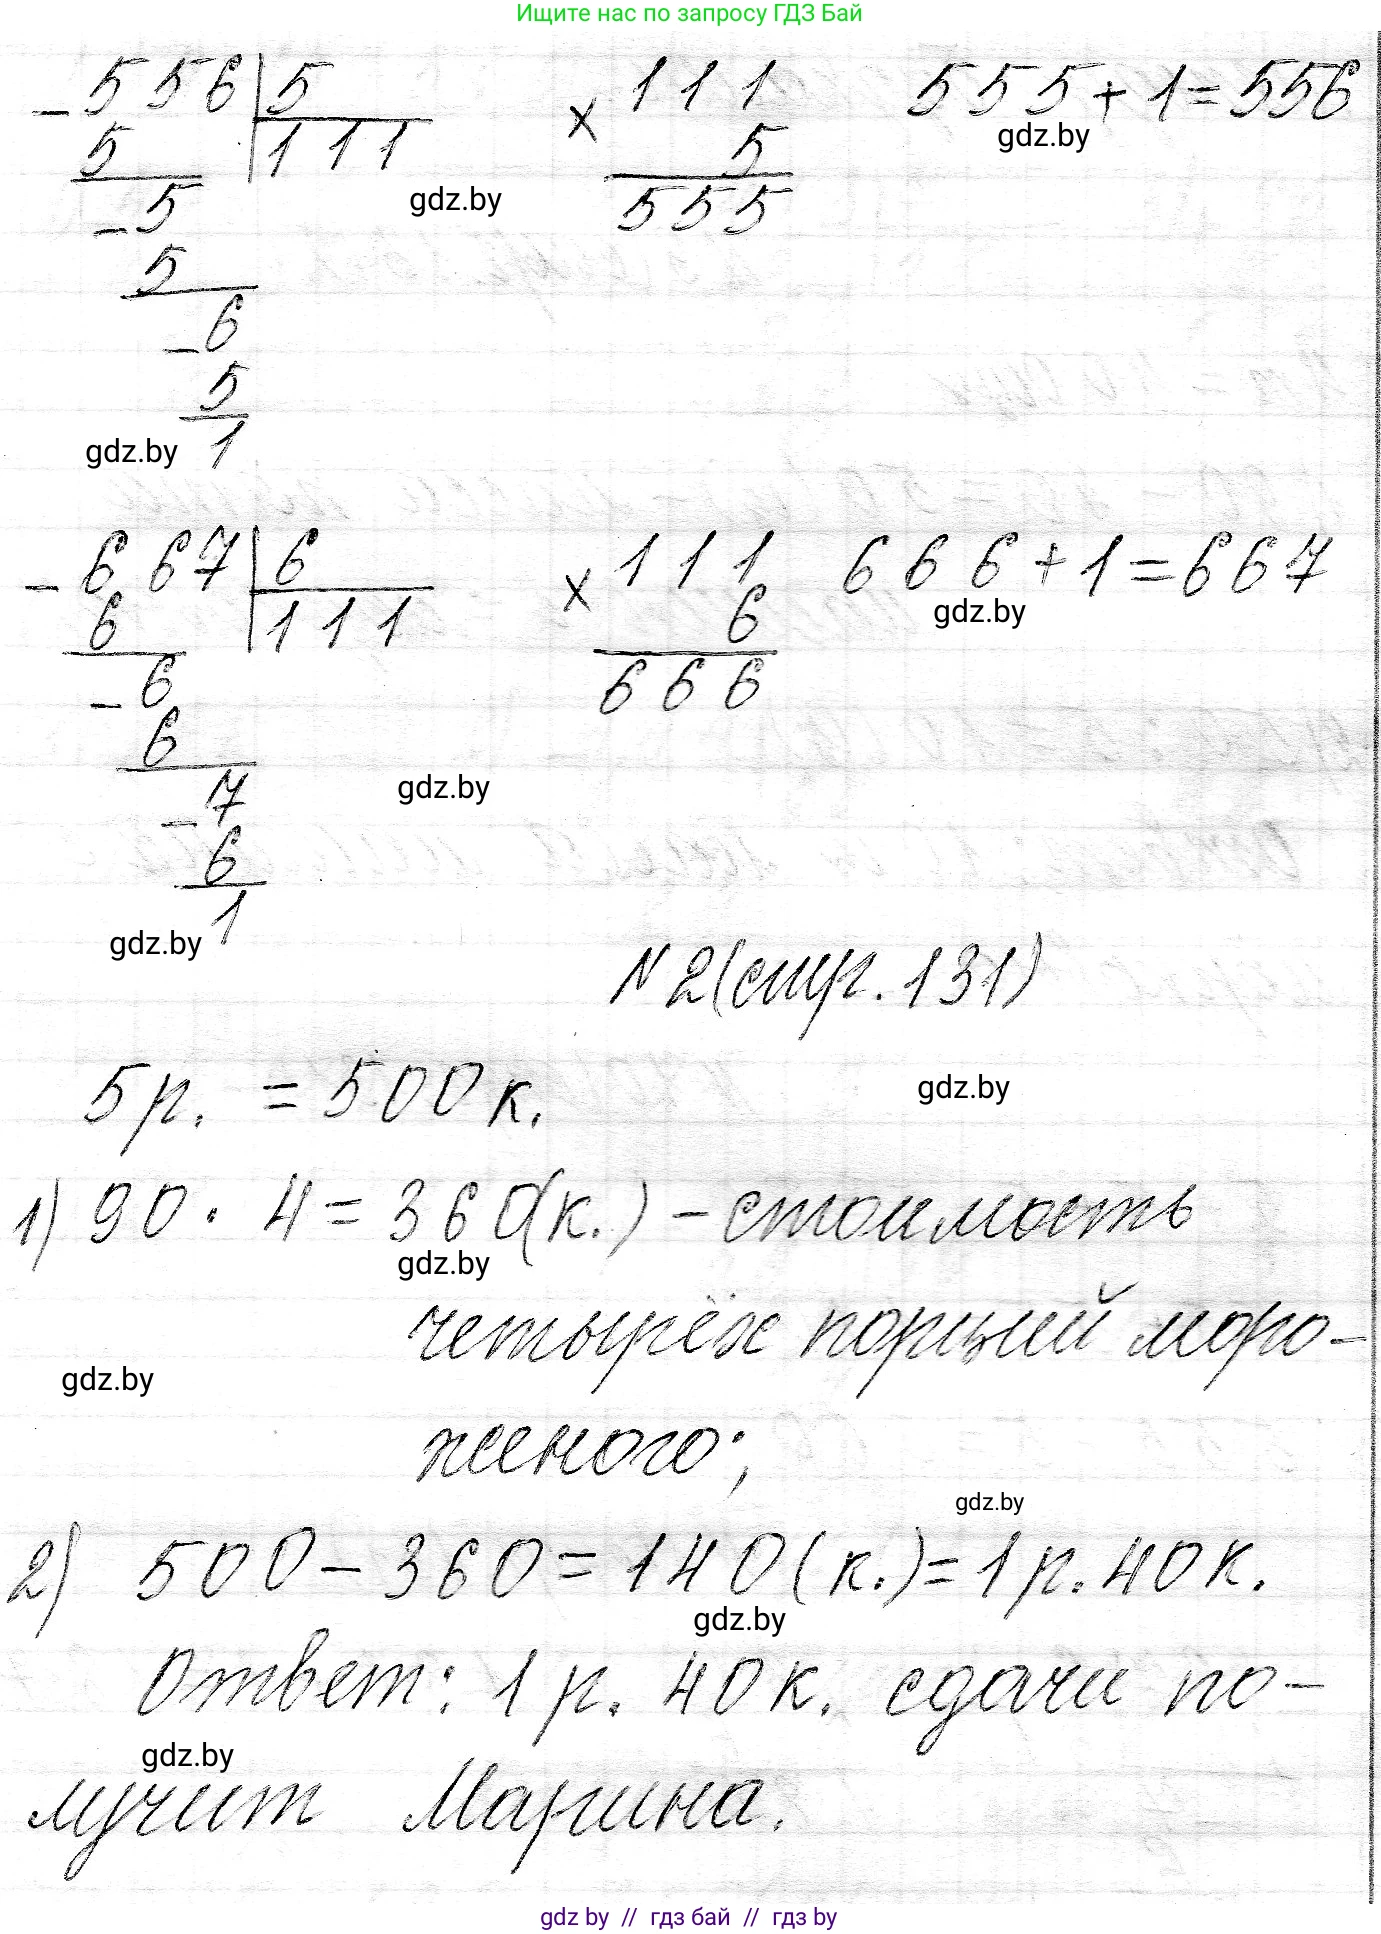 Ищите нас по запросу ГДЗ Бай
- 556 | 5     × 111     555 + 1 = 556
gdz.by
5     111     5
gdz.by
- 5     555
5
- 6
5
gdz.by 1
- 667 | 6     × 111     666 + 1 = 667
6     111     6
gdz.by
- 6     666
6
gdz.by
- 7
6
gdz.by 1
№ 2 (стр. 131)
5 р. = 500 к.
gdz.by
1) 90 · 4 = 360 (к.) – стоимость
gdz.by
четырёх порций моро-
gdz.by
женого;
gdz.by
2) 500 – 360 = 140 (к.) = 1 р. 40 к.
gdz.by
Ответ: 1 р. 40 к. сдачи по-
gdz.by
лучит Марина.
gdz by // гдз бай // гдз by